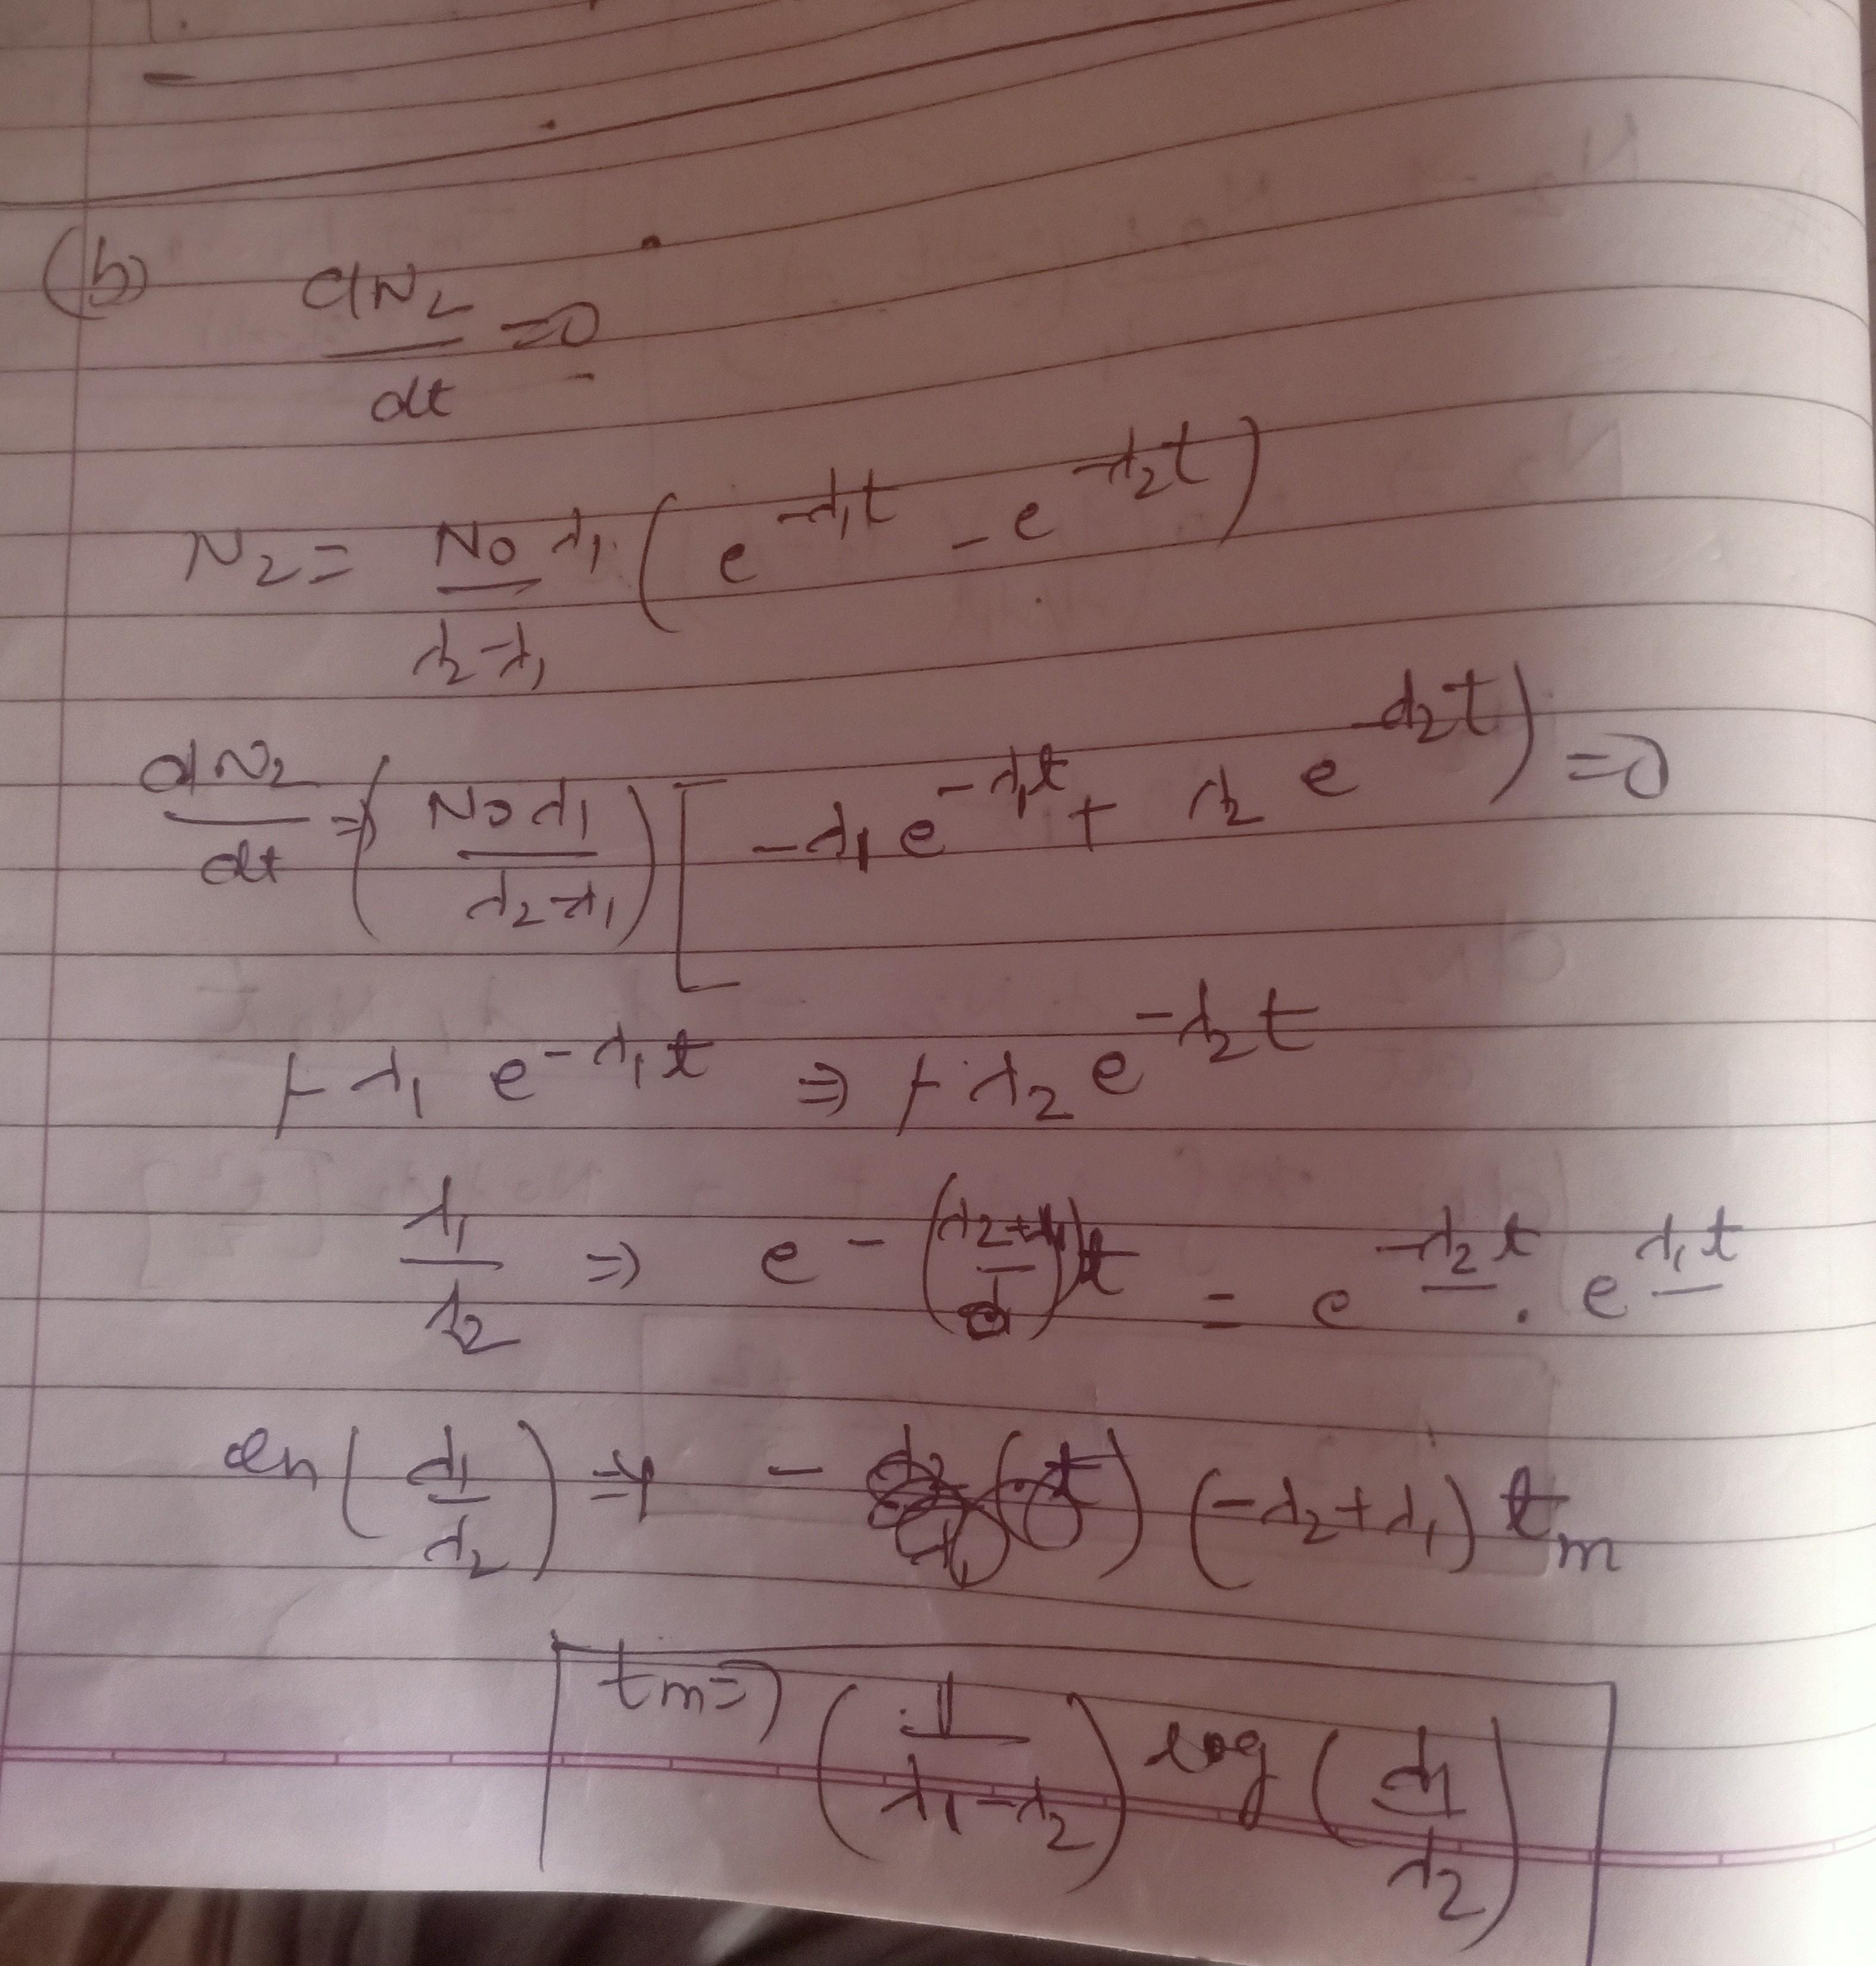 (b) dN₂/dt = 0
N₂ = N₀ λ₁/(λ₂-λ₁) (e^(-λ₁t) - e^(-λ₂t))
dN₂/dt ⇒ (N₀λ₁/(λ₂-λ₁)) [-λ₁e^(-λ₁t) + λ₂ e^(-λ₂t)) = 0
+ λ₁ e^(-λ₁t) ⇒ + λ₂ e^(-λ₂t)
λ₁/λ₂ ⇒ e^-(λ₂+λ₁)t = e^(-λ₂t) . e^(λ₁t)
ln(λ₁/λ₂) ⇒ (-λ₂+λ₁) tm
tm ⇒ (1/(λ₁-λ₂)) log (λ₁/λ₂)